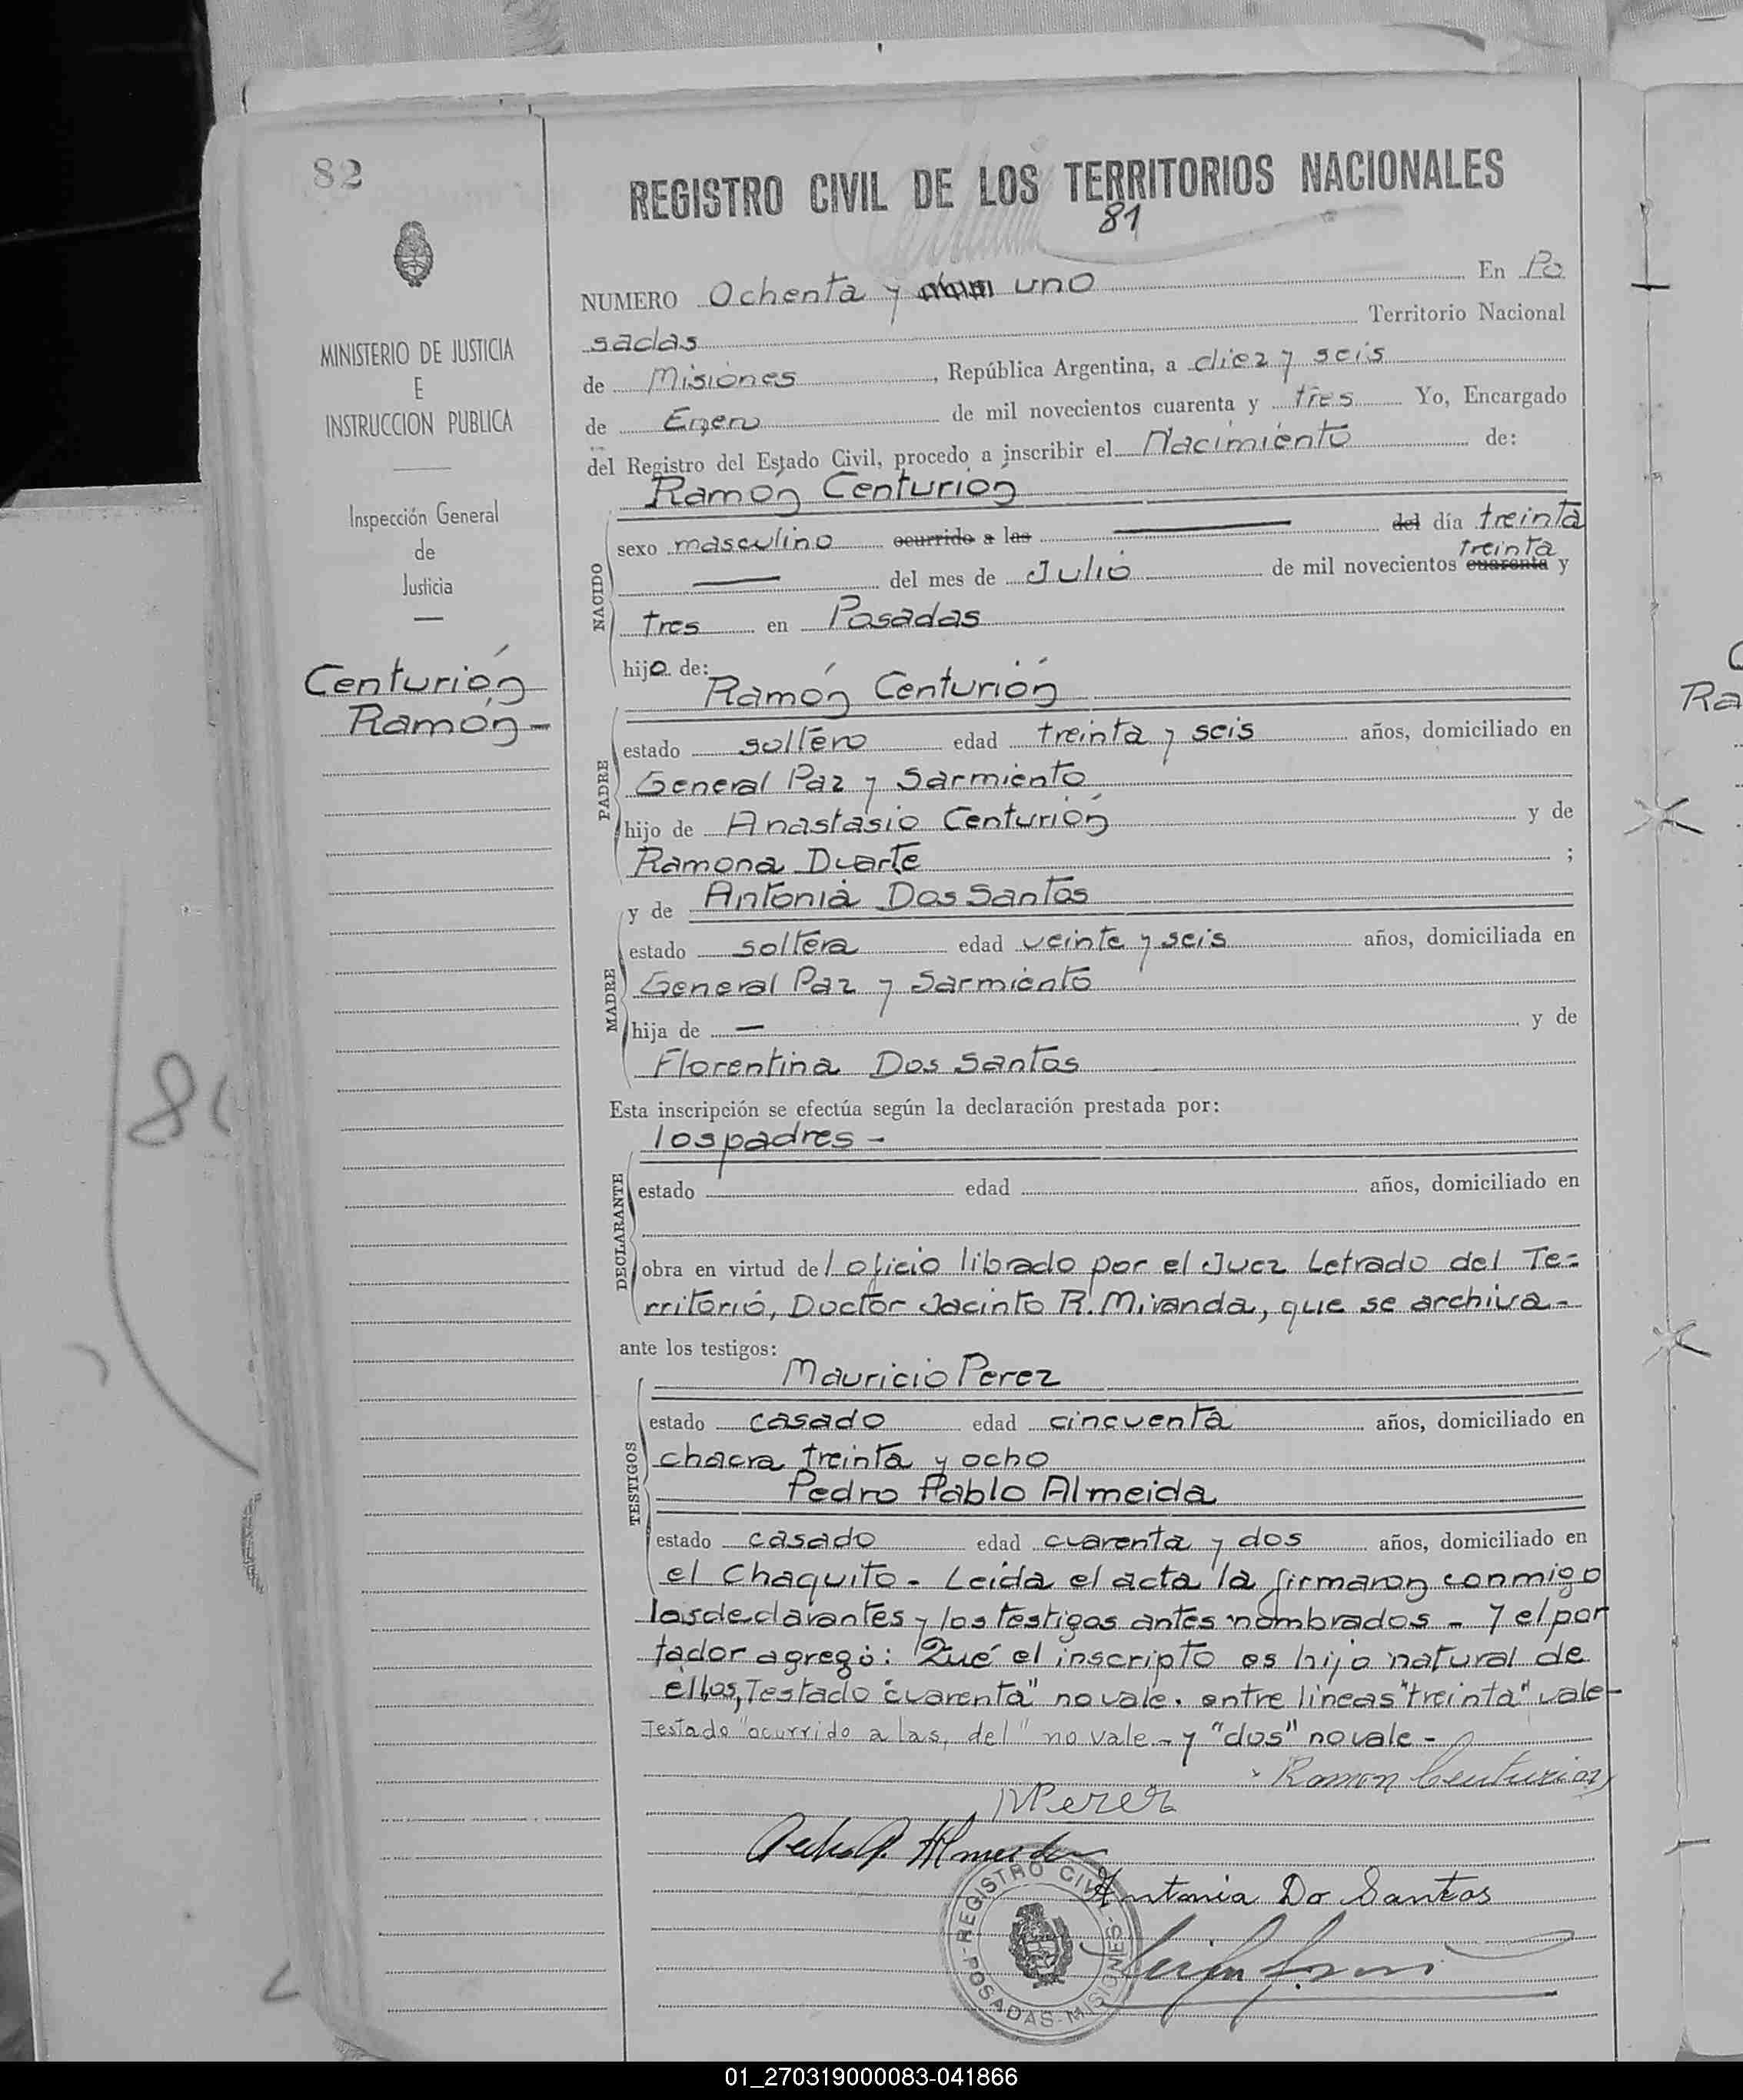 82
REGISTRO CIVIL DE LOS TERRITORIOS NACIONALES
81
MINISTERIO DE JUSTICIA
E
INSTRUCCION PUBLICA
Inspección General
de
Justicia
Centurión
Ramón-
NUMERO Ochenta y uno En Po
sadas Territorio Nacional
de Misiones, República Argentina, a diez y seis
de Enero de mil novecientos cuarenta y tres Yo, Encargado
del Registro del Estado Civil, procedo a inscribir el Nacimiento de:
Ramón Centurión
NACIDO
sexo masculino ocurrido a las del día treinta
treinta
del mes de Julio de mil novecientos cuarenta y
tres en Posadas
hijo de:
Ramón Centurión
PADRE
estado soltero edad treinta y seis años, domiciliado en
General Paz y Sarmiento
hijo de Anastasio Centurión y de
Ramona Duarte ;
y de Antonia Dos Santos
MADRE
estado soltera edad veinte y seis años, domiciliada en
General Paz y Sarmiento
hija de — y de
Florentina Dos Santos
Esta inscripción se efectúa según la declaración prestada por:
los padres -
DECLARANTE
estado edad años, domiciliado en
obra en virtud del oficio librado por el Juez Letrado del Te=
rritorio, Doctor Jacinto R. Miranda, que se archiva-
ante los testigos:
Mauricio Perez
TESTIGOS
estado casado edad cincuenta años, domiciliado en
chacra treinta y ocho
Pedro Pablo Almeida
estado casado edad cuarenta y dos años, domiciliado en
el Chaquito - Leida el acta la firmaron conmigo
los declarantes y los testigos antes nombrados - y el por
tador agregó: Qué el inscripto es hijo natural de
ellos, Testado "cuarenta" no vale. entre lineas "treinta" vale-
Testado "ocurrido a las, del" no vale - y "dos" no vale -
Ramon Centurion
MPerez
Pedro P. Almeida
Antonia Do Santos
REGISTRO CIVIL - POSADAS - MISIONES -
C
Ra
01_270319000083-041866